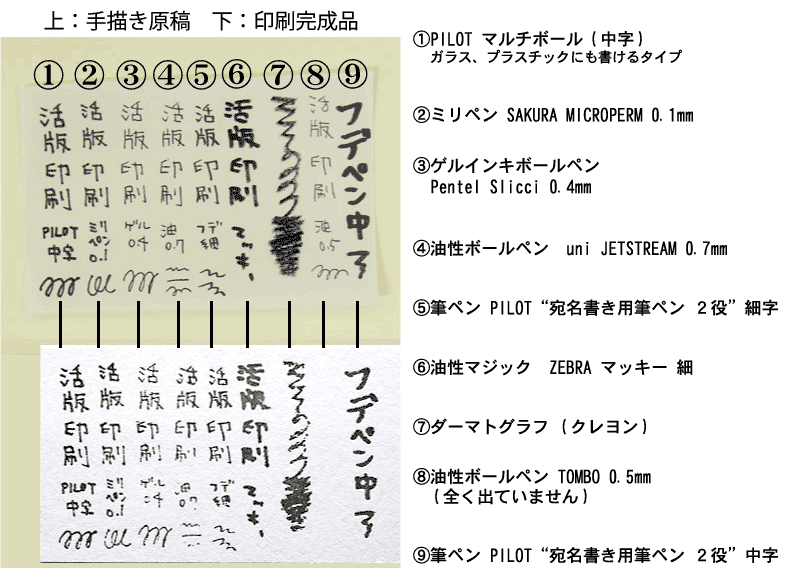 上：手描き原稿　下：印刷完成品
①②③④⑤⑥⑦⑧⑨
活版印刷
PILOT
中字
活版印刷
ミリ
ペン
0.1
活版印刷
ゲル
0.4
活版印刷
油
0.7
活版印刷
フデ
細
活版印刷
マッキー
活版印刷
油
0.5
フデペン中
活版印刷
PILOT
中字
活版印刷
ミリ
ペン
0.1
活版印刷
ゲル
活版印刷
油
活版印刷
フデ
細
活版印刷
マッキー
フデペン中
①PILOT マルチボール（中字）
ガラス、プラスチックにも書けるタイプ
②ミリペン SAKURA MICROPERM 0.1mm
③ゲルインキボールペン
Pentel Slicci 0.4mm
④油性ボールペン　uni JETSTREAM 0.7mm
⑤筆ペン PILOT“宛名書き用筆ペン ２役”細字
⑥油性マジック　ZEBRA マッキー 細
⑦ダーマトグラフ（クレヨン）
⑧油性ボールペン TOMBO 0.5mm
（全く出ていません）
⑨筆ペン PILOT“宛名書き用筆ペン ２役”中字